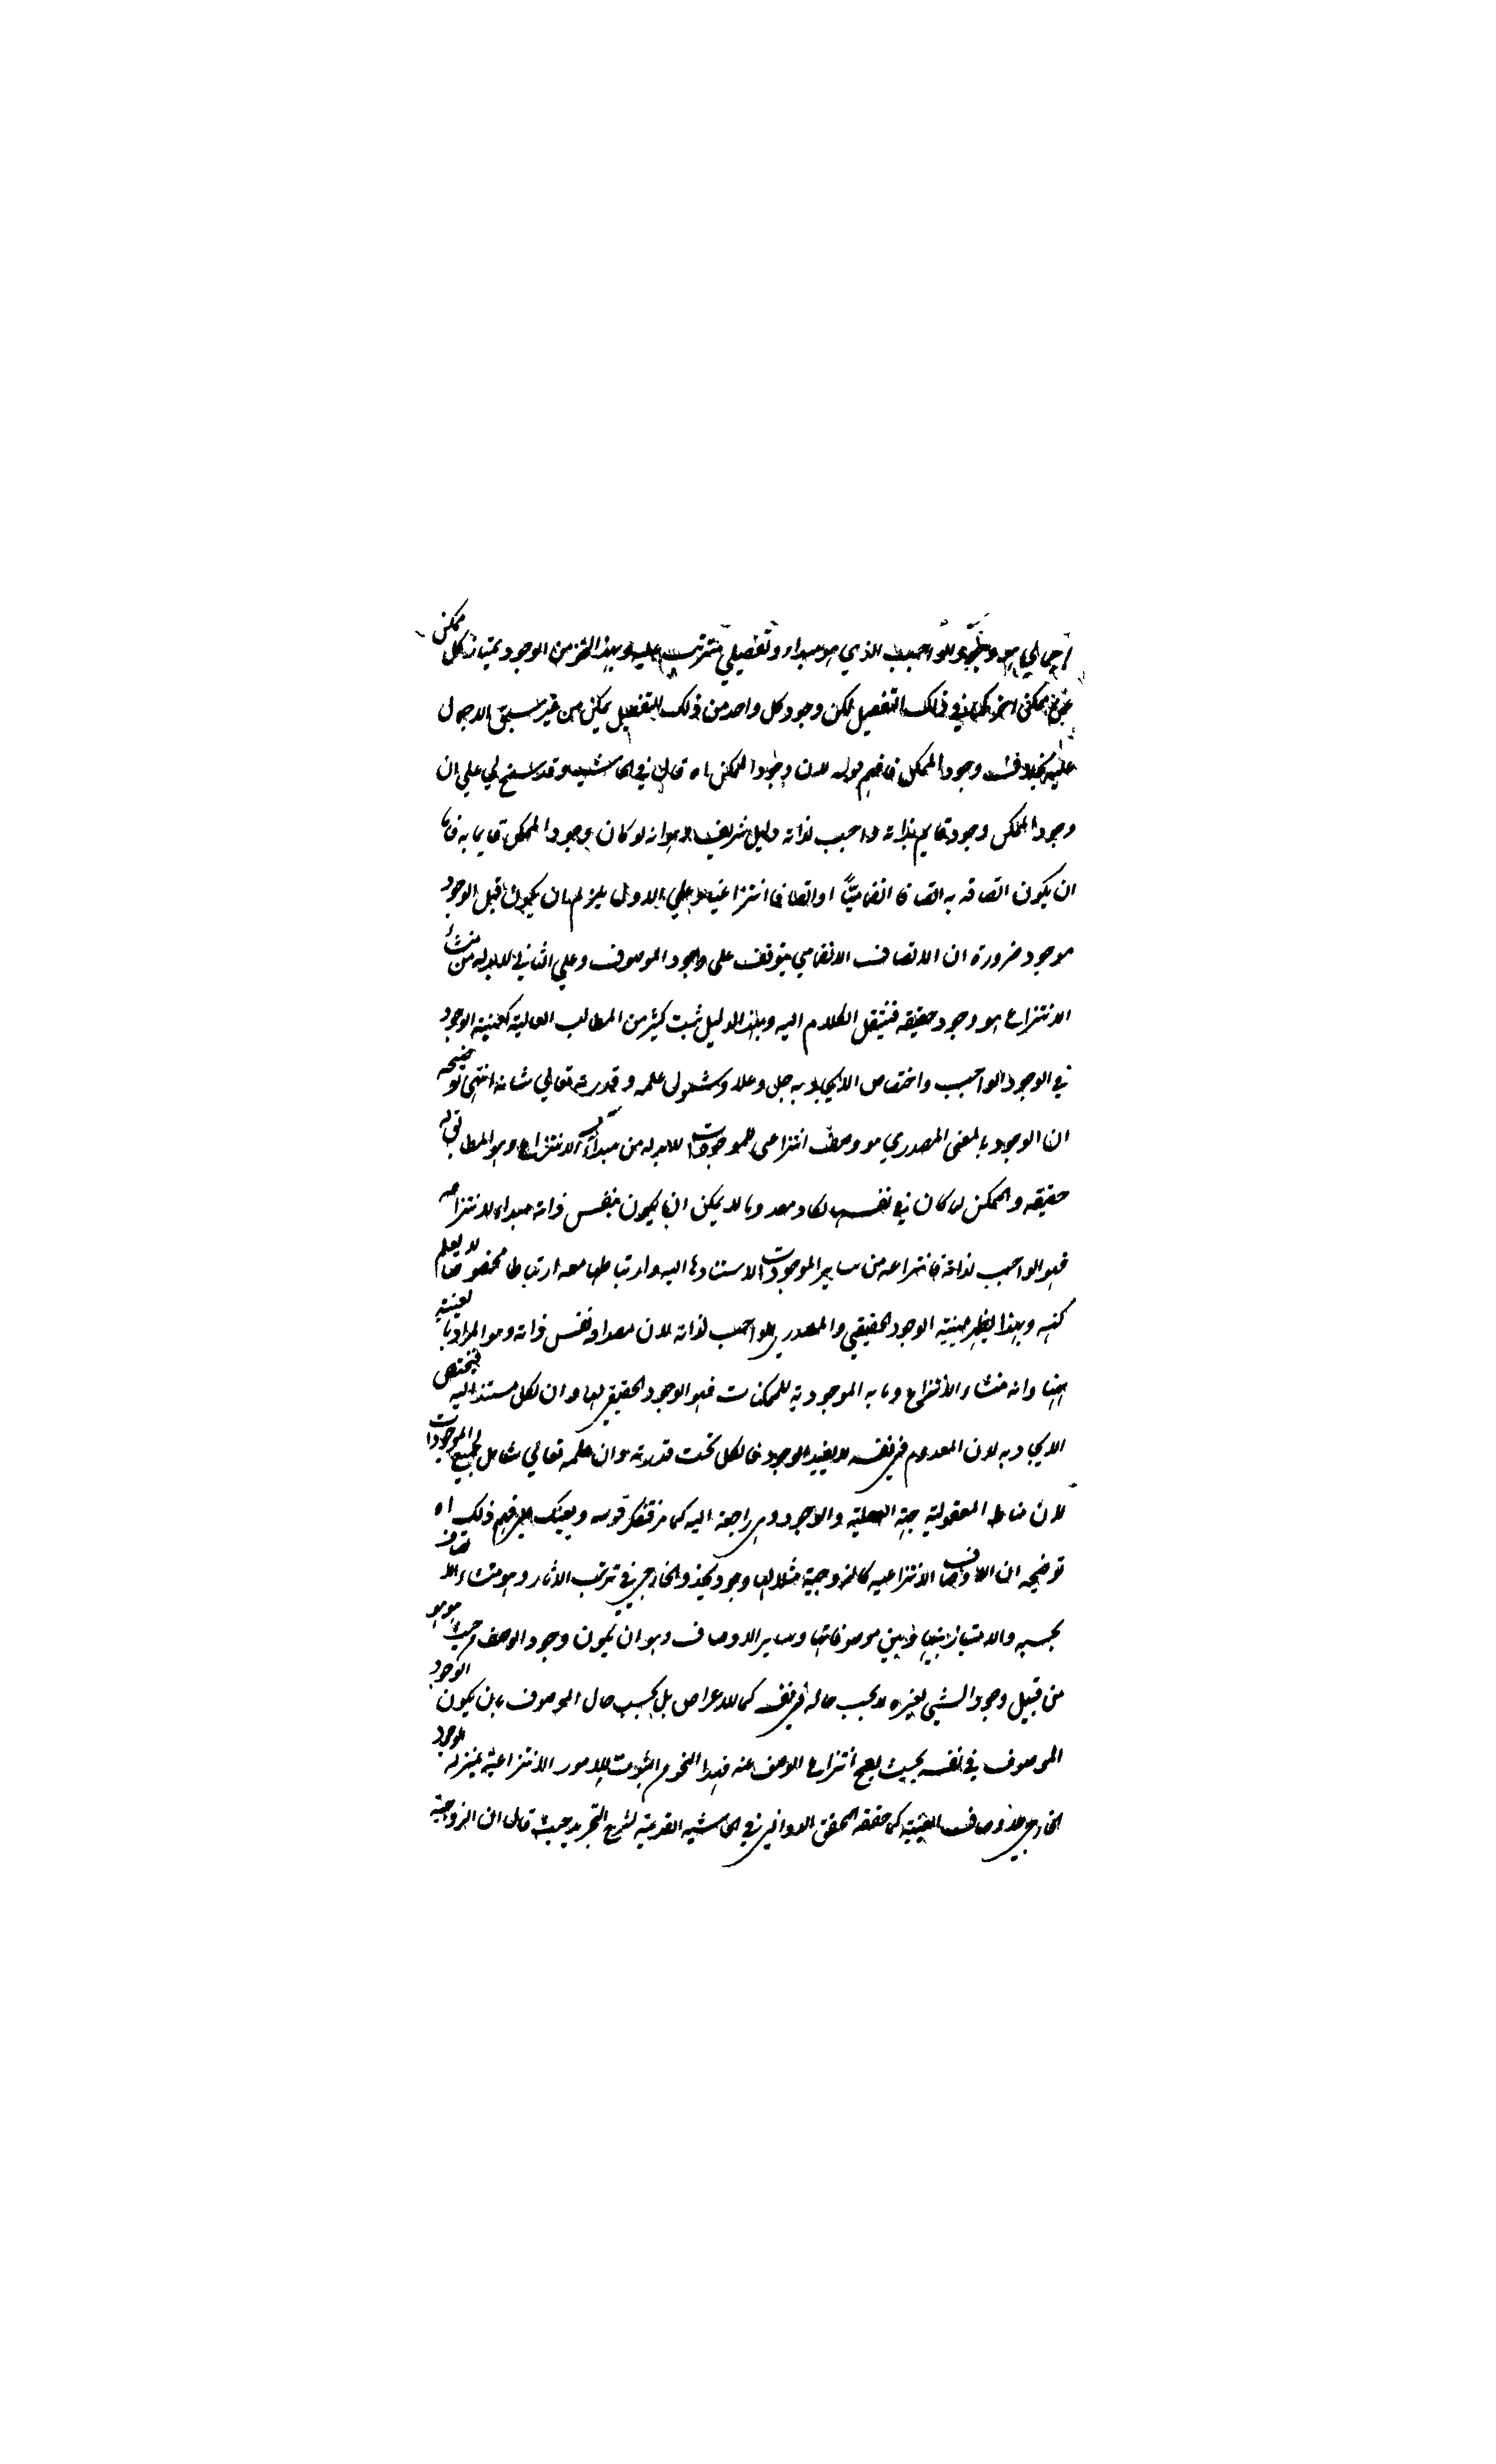 اجمالي هو وجود الواجب الذي هو مبداء وتفصيلي مترتب عليه وبهذا النحو من الوجود يمتياز كل ممكن
عن ممكن اخر كل في ذلك التفصيل ممكن وجود كل واحد من ذلك التفصيل يمكن من غير سبق الاجمال
عليه بخلاف وجود الممكن فافهم قوله لان وجود الممكن اه قال في الحاشيه وقد سنح لي علي ان
وجود الممكن وجود قايم بذاته واجب لذاته دليل شريف وهو انه لو كان وجود الممكن قايما به فاما
ان يكون اتصافه به اتصافا انضماميًا او اتصافا انتزاعيا وعلي الاول يلزم ان يكون قبل الوجود
موجود ضرورة ان الاتصاف الانضمامي يتوقف على وجود الموصوف وعلي الثاني لابد له من منشاء
الانتزاع هو وجود حقيقه فننقل الكلام اليه وبهذا الدليل يثبت كثير من المطالب العالية كعينية الوجود
في الوجود الواجب واختصاص الايجاد به جل وعلا وشمول علمه وقدرته تعالي شانه انتهى توضيحه
ان الوجود بالمعنى المصدري هو وصف انتزاعي للموجودات لابد له من مبداء الانتزاع وهو المطابق له
حقيقه والممكن لما كان في نفسه هالكا ومعدوما لا يمكن ان يكون بنفس ذاته مبداء لانتزاعه
فهو الواجب لذاته فانتزاعه من ساير الموجودات لاستنادها اليه وارتباطها معه ارتباطا مخصوصا لا يعلم
كنهه وبهذا يظهر عينية الوجود الحقيقي والمصدري للواجب لذاته لان مصداقه نفس ذاته وهو المراد بالعينية
ههنا وانه منشاء الانتزاع وما به الموجودية للممكنات فهو الوجود الحقيقي لها وان الكل مستند اليه فيختص
الايجاد به لان المعدوم في نفسه لا يفيد الوجود فالكل تحت قدرته وان علمه تعالي شامل لجميع الموجودات
لان مناط المعقولية جهة الفعلية والوجود وهي راجعة اليه كما مر فتفكر قوله ويعينك على فهم ذلك اه
توضيحه ان الاوصاف الانتزاعيه كالزوجية مثلا لها وجود يحذو الخارجي في ترتب الاثار وهو منشاء الاتصاف
بحسبه والامتياز بينها وبين موصوفاتها وساير الاوصاف وهو ان يكون وجود الوصف من حيث هو هو
من قبيل وجود الشيى لغيره لا بحسب حاله في نفسه كما للاعراض بل بحسب حال الموصوف بان يكون الوجود
الموصوف في نفسه بحيث يصح انتزاع الوصف عنه فهذا النحو من الثبوت للامور الانتزاعية بمنزلة الوجود
الخارجي للاوصاف العينية كما حققه المحقق الدواني في الحاشيه القديمة لشرح التجريد حيث قال ان الزوجية